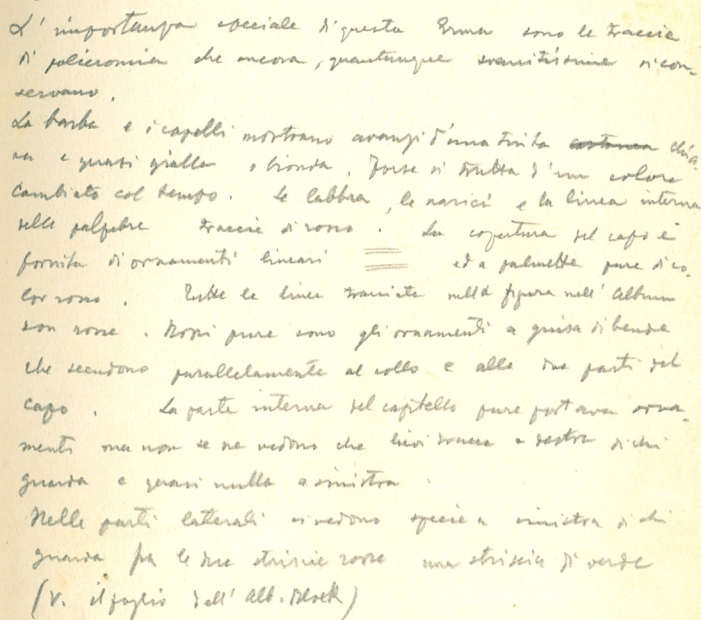 L'importanza speciale di questa Erma sono le traccie
di policromia che ancora, quantunque svanitissime si con-
servano.
La barba e i capelli mostrano avanzi d'una tinta chia-
ra e quasi gialla o bionda. Forse si tratta d'un colore
cambiato col tempo. Le labbra, le narici e la linea interna
delle palpebre traccie di rosso. La copertura del capo è
fornita di ornamenti lineari ed a palmette pure di co-
lor rosso. Tutte le linee tracciate nella figura nell'Album
son rosse. Rossi pure sono gli ornamenti a guisa di bende
che scendono parallelamente al collo e alle due parti del
capo. La parte interna del capitello pure portava orna-
menti ma non se ne vedono che lievi a destra di chi
guarda e quasi nulla a sinistra.
Nelle parti laterali si vedono specie a sinistra di chi
guarda fra le due striscie rosse una striscia di verde
(V. il foglio dell'Alb. Block)